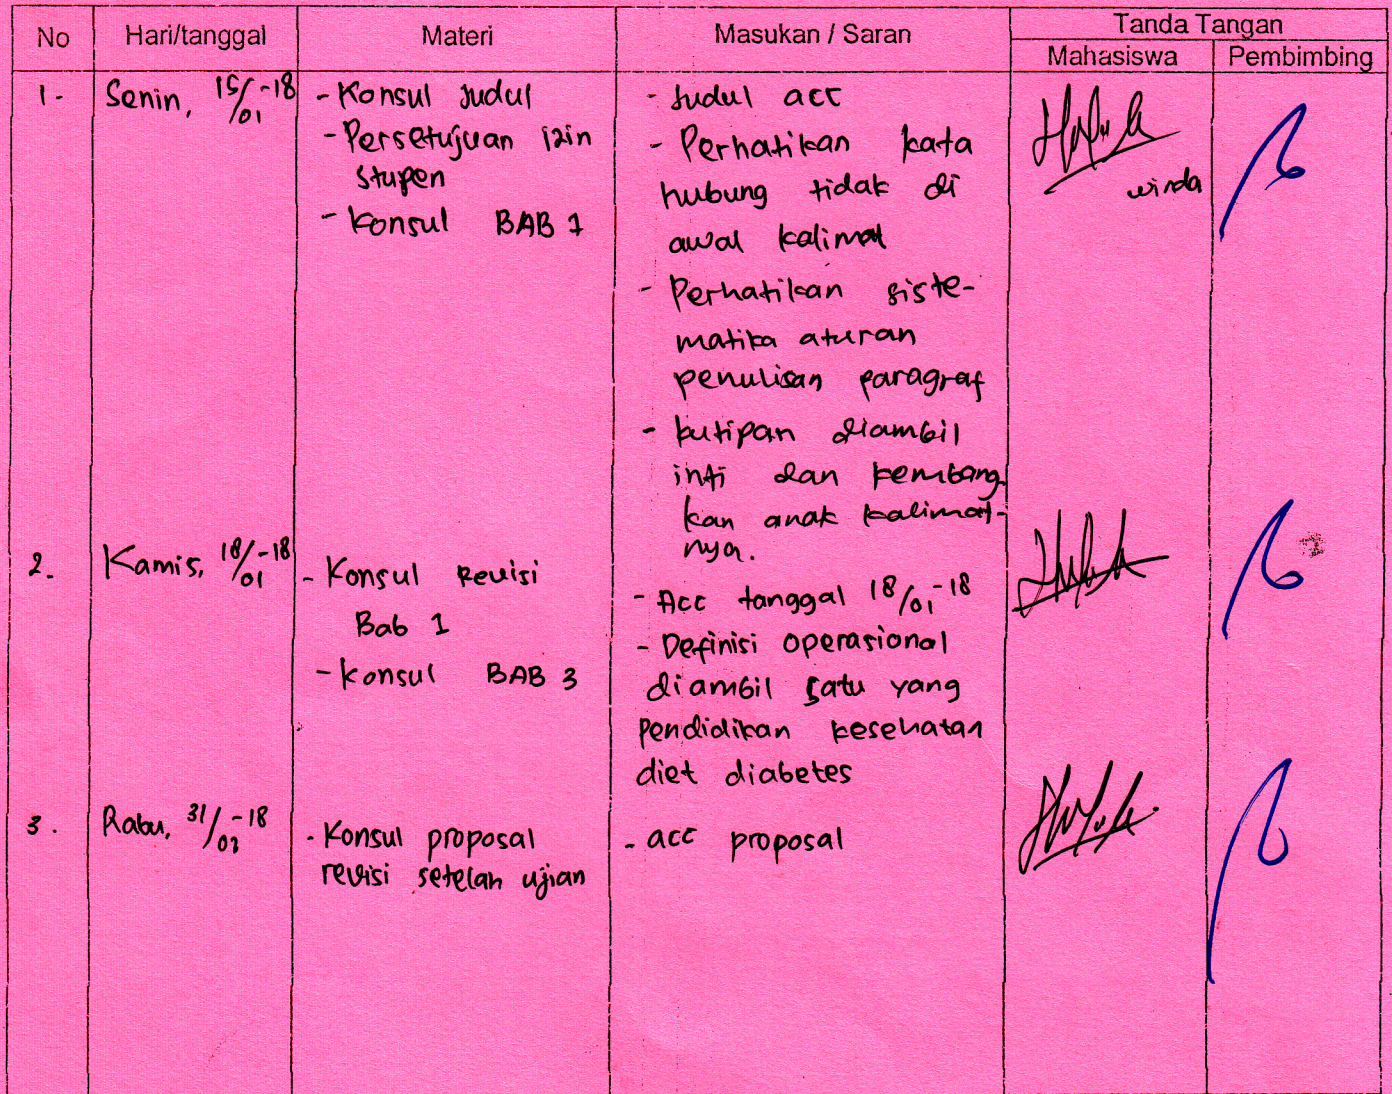 No Hari/tanggal Materi Masukan / Saran Tanda Tangan
Mahasiswa Pembimbing
1- Senin, 15/01-18
- Konsul Judul
- Persetujuan izin
stupen
- Konsul BAB 1
- Judul acc
- Perhatikan kata
hubung tidak di
awal kalimat
- Perhatikan siste-
matika aturan
penulisan paragraf
- kutipan diambil
inti dan kembang
kan anak kalimat-
nya.
winda
2. Kamis, 18/01-18
- Konsul Revisi
Bab 1
- Konsul BAB 3
- Acc tanggal 18/01-18
- Definisi operasional
diambil satu yang
pendidikan kesehatan
diet diabetes
3. Rabu,
- Konsul proposal
revisi setelah ujian
- acc proposal